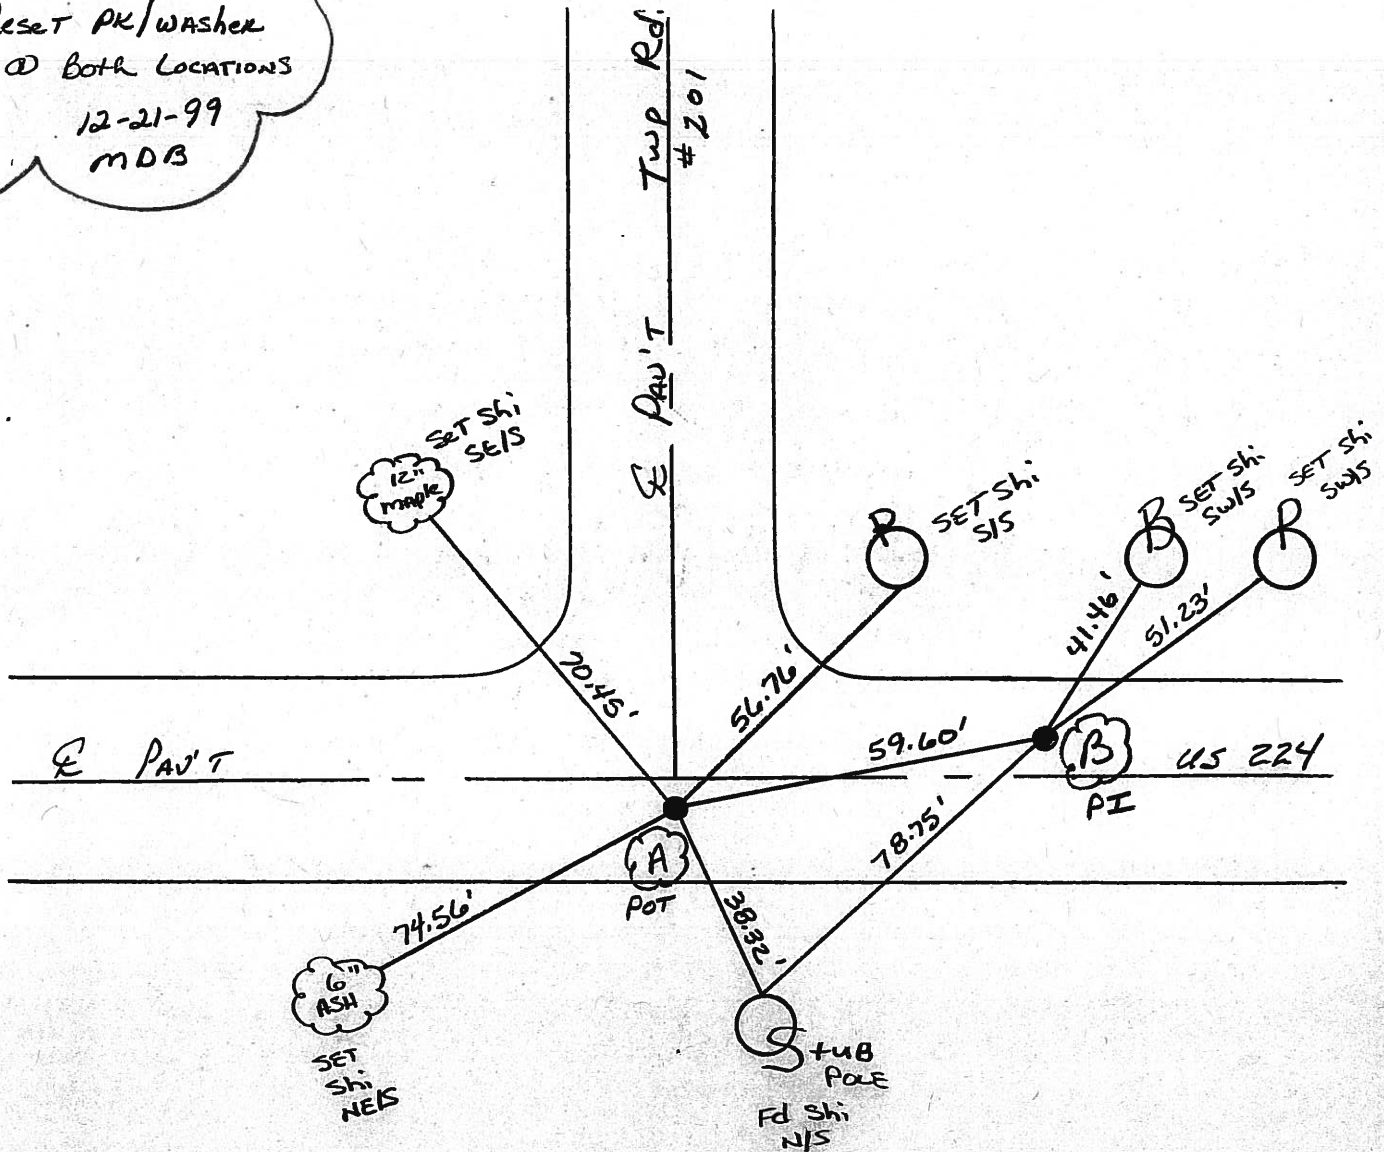 Reset PK/WASHER
@ Both LOCATIONS
12-21-99
MDB
Twp Rd.
#201
℄ PAV'T
SET Shi
SE/S
12"
MAPLE
R
SET Shi
S/S
B
SET Shi
SW/S
P
SET Shi
SW/S
70.45'
56.76'
41.46'
51.23'
59.60'
℄ PAV'T
B
US 224
PI
A
POT
78.75'
74.56'
38.32'
6"
ASH
SET
Shi
NE/S
Stub
POLE
Fd Shi
N/S